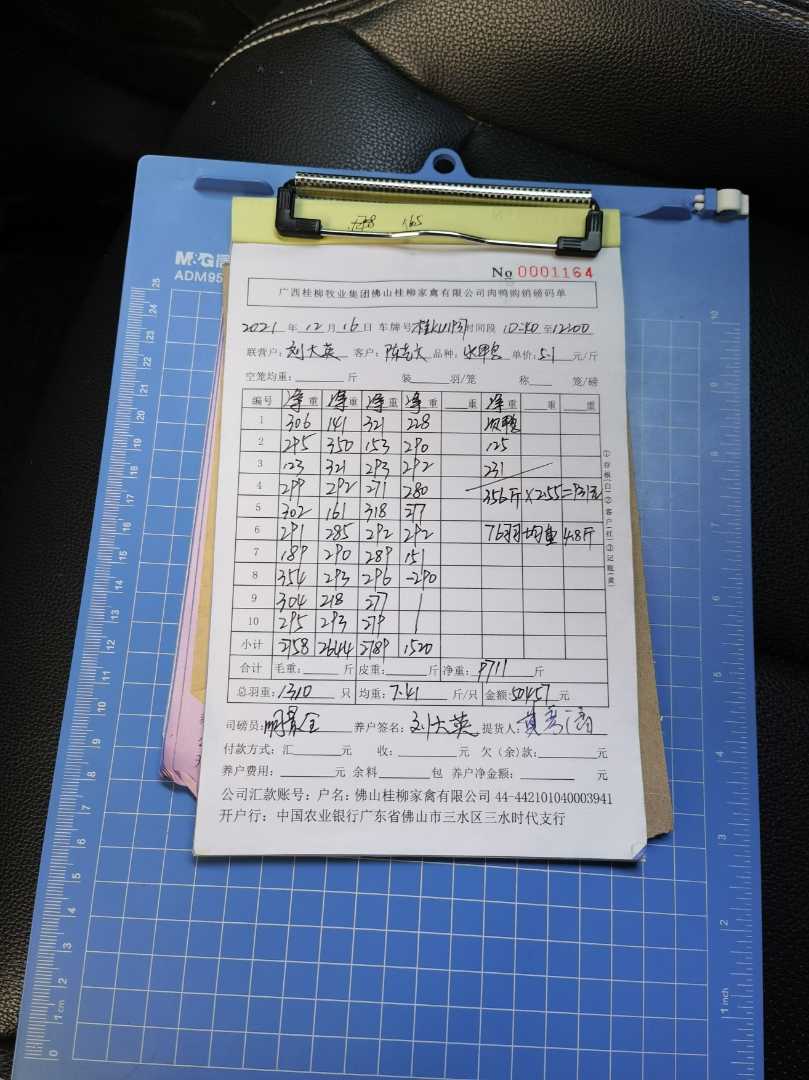 M&G
ADM95
165
No 0001164
广西桂柳牧业集团佛山桂柳家禽有限公司肉鸭购销磅码单
2021 年 12 月 16 日 车牌号 时间段 10:40 至 12:00
联营户: 刘大英 客户: 陈志大 品种: 水鸭 单价: 5.1 元/斤
空笼均重: 斤 装 羽/笼 称 笼/磅
编号 净重 净重 净重 净重 重 净重 重 重
1 306 141 321 228 次鸭
2 295 350 153 290 125
3 123 321 293 292 231
4 299 292 271 280 356斤×2.55=931元
5 302 161 318 277
6 291 285 292 292 76羽均重4.8斤
7 189 290 289 151
8 354 293 296 -290
9 304 218 277
10 295 293 279
小计 2758 2644 2789 1520
合计 毛重: 斤 皮重: 斤 净重: 9711 斤
总羽重: 1310 只 均重: 7.41 斤/只 金额: 50457 元
司磅员: 养户签名: 刘大英 提货人:
付款方式: 汇 元 收: 元 欠(余)款: 元
养户费用: 元 余料 包 养户净金额: 元
公司汇款账号: 户名: 佛山桂柳家禽有限公司 44-442101040003941
开户行: 中国农业银行广东省佛山市三水区三水时代支行
①存根(白)②客户(红)③记账(黄)